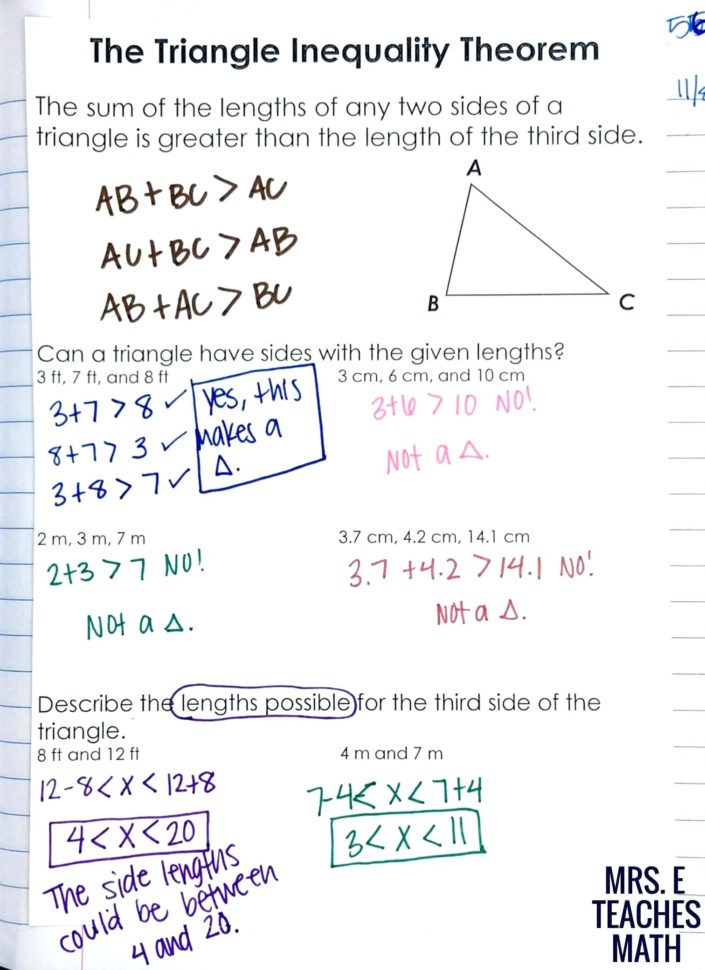 56
11/
The Triangle Inequality Theorem
The sum of the lengths of any two sides of a
triangle is greater than the length of the third side.
AB + BC > AC
AC + BC > AB
AB + AC > BC
A
B
C
Can a triangle have sides with the given lengths?
3 ft, 7 ft, and 8 ft
3+7 > 8 ✓
8+7 > 3 ✓
3+8 > 7 ✓
yes, this
makes a
Δ.
3 cm, 6 cm, and 10 cm
3+6 > 10 NO!
Not a Δ.
2 m, 3 m, 7 m
2+3 > 7 NO!
Not a Δ.
3.7 cm, 4.2 cm, 14.1 cm
3.7 + 4.2 > 14.1 NO!
Not a Δ.
Describe the lengths possible for the third side of the
triangle.
8 ft and 12 ft
12-8 < x < 12+8
4 < x < 20
The side lengths
could be between
4 and 20.
4 m and 7 m
7-4 < x < 7+4
3 < x < 11
MRS. E
TEACHES
MATH